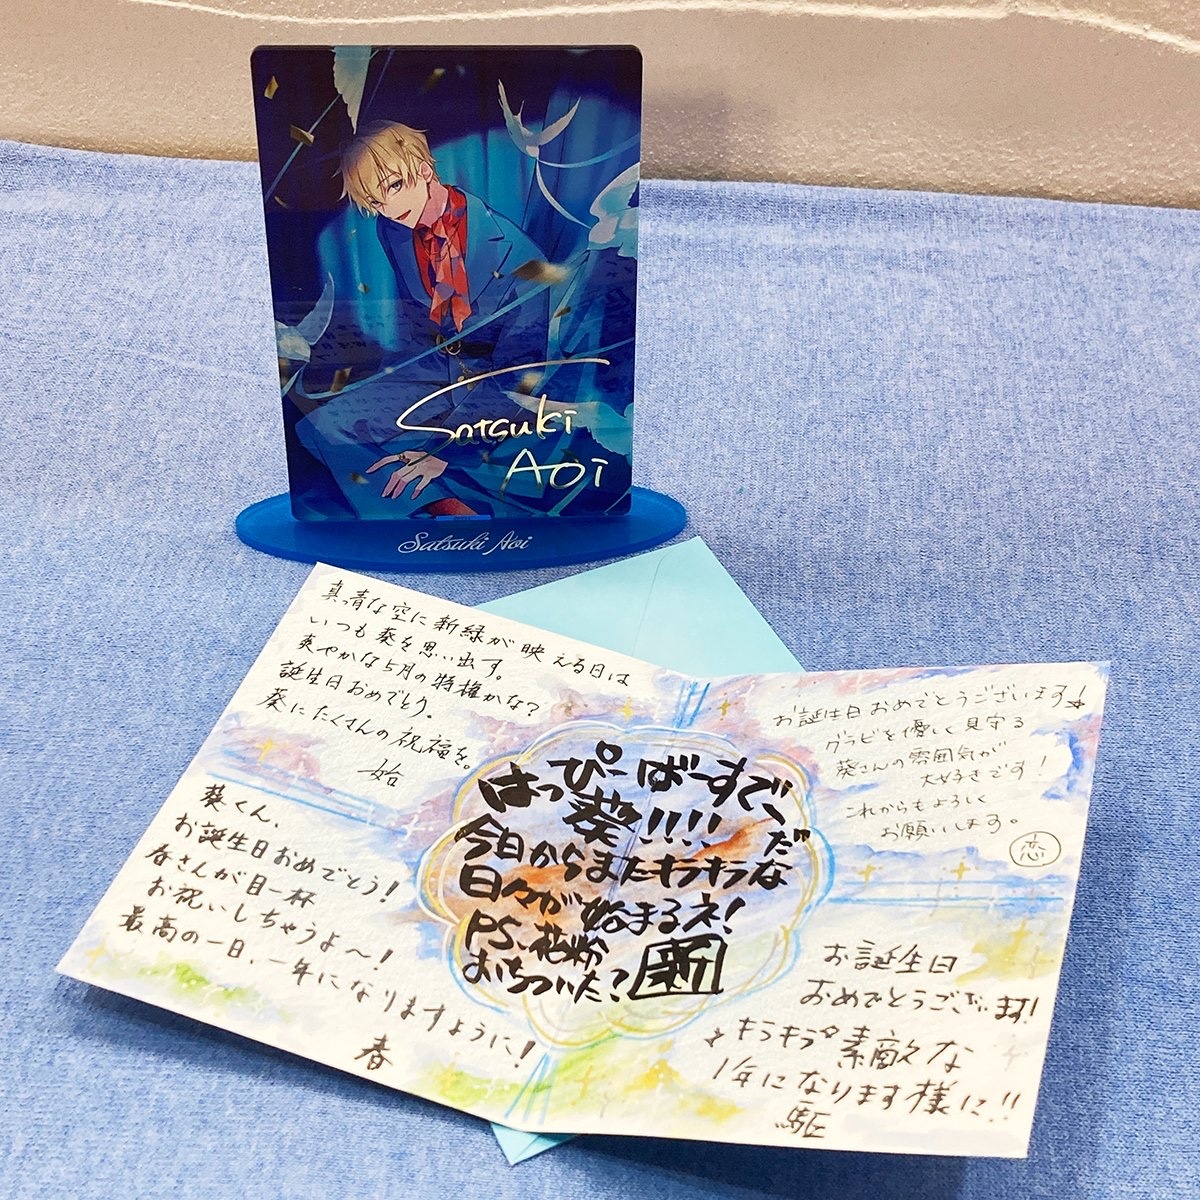 Satsuki
Aoi
Satsuki Aoi
真っ青な空に新緑が映える日は
いつも葵を思い出す。
爽やかな5月の特権かな?
誕生日おめでとう。
葵にたくさんの祝福を。
始
葵くん、
お誕生日おめでとう!
春さんが目一杯
お祝いしちゃうよ〜!
最高の一日、一年になりますように!
春
はっぴーばーすでー
葵!!!!だ
今日からまたキラキラな
日々が始まるネ!
PS、花粉
おちついた?新
お誕生日おめでとうございます!
グラビを優しく見守る
葵さんの雰囲気が
大好きです!
これからもよろしく
お願いします。
恋
お誕生日
おめでとうございます!
キラキラ素敵な
1年になります様に!!
駆